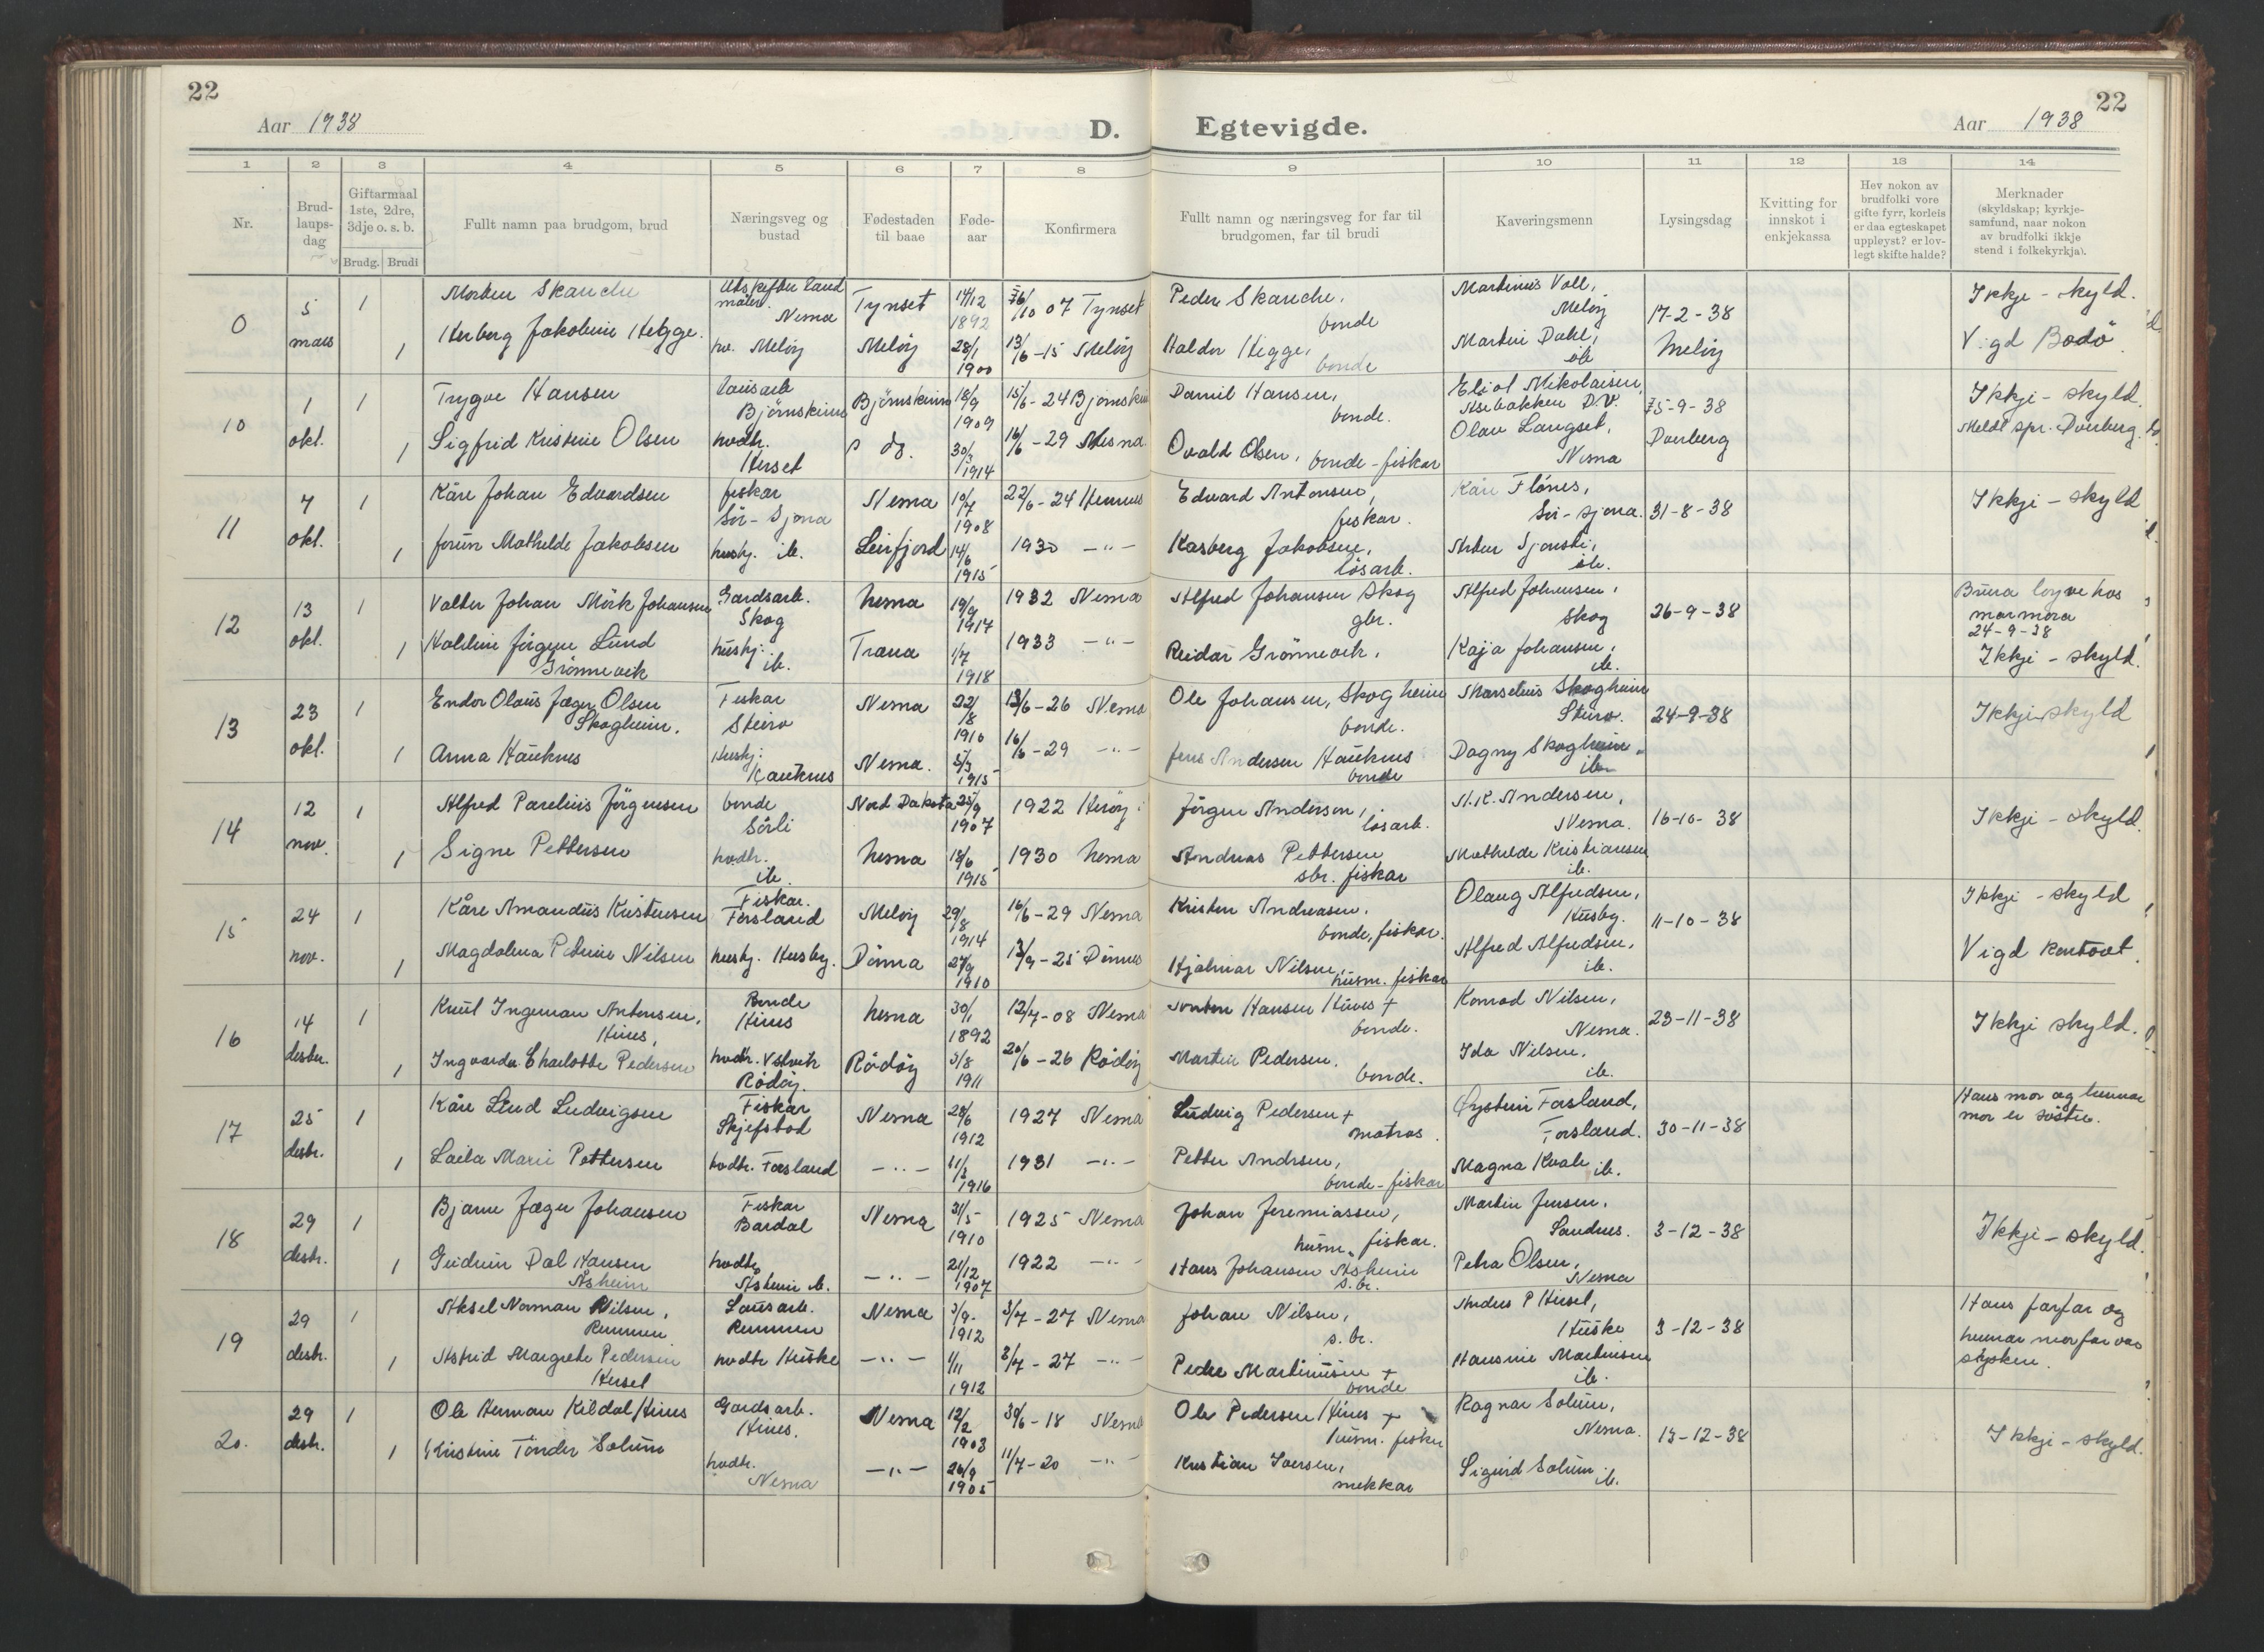 22
Aar 1938
D.
Egtevigde.
Aar 1938
22
1 2 3 4 5 6 7 8 9 10 11 12 13 14
Nr.
Brud-
laups-
dag
Giftarmaal
1ste, 2dre,
3dje o. s. b.
Brudg. Brudi
Fullt namn paa brudgom, brud
Næringsveg og
bustad
Fødestaden
til baae
Føde-
aar
Konfirmera
Fullt namn og næringsveg for far til
brudgomen, far til brudi
Kaveringsmenn
Lysingsdag
Kvitting for
innskot i
enkjekassa
Hev nokon av
brudfolki vore
gifte fyrr, korleis
er daa egteskapet
uppløyst? er lov-
legt skifte halde?
Merknader
(skyldskap; kyrkje-
samfund, naar nokon
av brudfolki ikkje
stend i folkekyrkja).
0
5
mars
1
Morten Skanche
Nesna
Tynset
14/12
1892
10 07 Tynset
Peder Skanche,
bonde
Martinus Voll,
Meløy
17-2-38
Meløy
Ikkje - skyld.
1
Herborg Jakobine Hegge.
hv. Meløy
Meløy
28/1
1900
13/6 -15 Meløy
Haldor Hegge,
bonde
Martin Dahl,
ib
Vigd Bodö
10
1
okt.
1
Trygve Hansen
lausarb
Björnskinn
Björnskinn
18/9
1909
15/6 -24 Björnskinn
Daniel Hansen,
bonde.
Eliot Nikolaisen,
Åsebakken D.V.
-9-38
Dverberg
Ikkji - skyld.
Meldt spr. Dverberg.
1
Sigfrid Kristine Olsen
hvdtr.
Herset
30/3
1914
16/6 -29 Nesna
Ovald Olsen, bonde - fiskar
Olav Langset,
Nesna
11
7
okt.
1
Kåre Johan Edvardsen
fiskar
Sör-Sjona
Nesna
10/7
1908
22/6 -24 Hemnes
Edvard Antonsen,
fiskar.
Kåre Flönes,
Sör-Sjona.
31-8-38
Ikkji - skyld
1
Jorun Mathilde Jakobsen
hushj. ib.
Leirfjord
14/6
1915
1930 -"-
Kasberg Jakobsen,
lösarb.
ib.
12
13
okt.
1
Valter Johan Mörk Johansen
Gardsarb.
Skog
Nesna
19/9
1917
1932 Nesna
Alfred Johansen Skog
gbr.
Alfred Johansen,
Skog
26-9-38
Brura løyve hos
mormora
24-9-38
Ikkji - skyld.
1
Haldine Jörgine Lund
Grönnevik
hushj.
ib.
Træna
1/7
1918
1933 -"-
Reidar Grönnevik,
Kaja Johansen,
ib.
13
23
okt.
1
Endor Olaus Jæger Olsen
Skogheim.
Fiskar
Steiro
Nesna
22/8
1910
13/6 -26 Nesna
Ole Johansen, Skogheim
bonde.
Marselius Skogheim
Steiro.
24-9-38
Ikkji skyld
1
Anna Hauknes
Hushj.
Hauknes
Nesna.
5/3
1915
16/6 -29 -"-
Jens Andersen Hauknes
bonde
Dagny Skogheim
ib.
14
12
nov.
1
Alfred Parelius Jörgensen
bonde
Sörli
Nord Dakota
25/9
1907
1922 Heröy
Jörgen Andersen,
lösarb.
N.K. Andersen,
Nesna.
16-10-38
Ikkji - skyld.
1
Signe Pettersen
hvdtr.
ib.
Nesna
18/6
1915
1930 Nesna
Andreas Pettersen
sbr. fiskar
Mathilde Kristiansen
ib.
15
24
nov.
1
Kåre Amandus Kristensen
Fiskar.
Forsland
Meløy
29/8
1914
16/6 -29 Nesna
Kristen Andreasen,
bonde, fiskar.
Olaug Alfredsen,
Husby.
11-10-38
Ikkji - skyld
1
Magdalena Petrine Nilsen
hushj. Husby.
Dönna
27/9
1910
13/9 -25 Dönnes
Hjalmar Nilsen,
husm. fiskar
Alfred Alfredsen,
ib.
Vigd kontort.
16
14
desbr.
1
Knut Ingeman Antonsen,
Hines,
Bonde
Hines
Nesna
30/1
1892
12/7 -08 Nesna
Anton Hansen Hines +
bonde.
Konrad Nilsen,
Nesna.
23-11-38
Ikkji skyld.
1
Ingvarda Charlotte Pedersen
Rödöy.
Rödöy
3/8
1911
20/6 -26 Rödöy
Martin Pedersen.
bonde.
Ida Nilsen,
ib.
17
25
desbr.
1
Kåre Lind Ludvigsen
Fiskar
Skjefsbod
Nesna
28/6
1912
1927 Nesna
Ludvig Pedersen +
matros.
Øystein Forsland,
Forsland.
30-11-38
Hans mor og hennar
mor er söstre.
1
Laila Marie Pettersen
hvdtr. Forsland
-"-
11/3
1916
1931 -"-
Petter Andrsen,
bonde - fiskar
Magna Kvale ib.
18
29
desbr.
1
Bjarne Jæger Johansen
Fiskar
Bardal
Nesna
31/5
1910
1925 Nesna
Johan Jeremiassen,
husm. fiskar.
Martin Jensen,
Sandnes.
3-12-38
Ikkji - skyld.
1
Gudrun Dal Hansen
Åsheim
hvdtr.
Åsheim ib.
-"-
21/12
1907
1922 -"-
Hans Johansen Åsheim
s.br.
Petra Olsen,
Nesna
19
29
desbr.
1
Aksel Norman Nilsen,
Remmen
Lausarb.
Remmen
Nesna
3/9
1912
3/7 -27 Nesna
Johan Nilsen,
s.br.
Anders P Hersel,
Huske
3-12-38
Hans farfar og
hennar morfar var
sysken.
1
Astrid Margrete Pedersen
Hersel
hvdtr Huske
-"-
1/11
1912
3/7 -27 -"-
Peder Martinusen +
bonde
Hansine Martinsen
ib.
20.
29
desbr.
1
Ole Herman Kildal Hines
Gardsarb.
Hines.
Nesna
12/2
1903
30/6 -18 Nesna
Ole Pedersen Hines +
husm. fisker
Ragnar Solum,
Nesna.
13-12-38
Ikkji - skyld.
1
Kristine Tönder Solum
hvdtr.
Nesna
-"-
26/9
1905
11/7 -20 -"-
Kristian Iversen,
mekkar
Sigurd Solum ib.